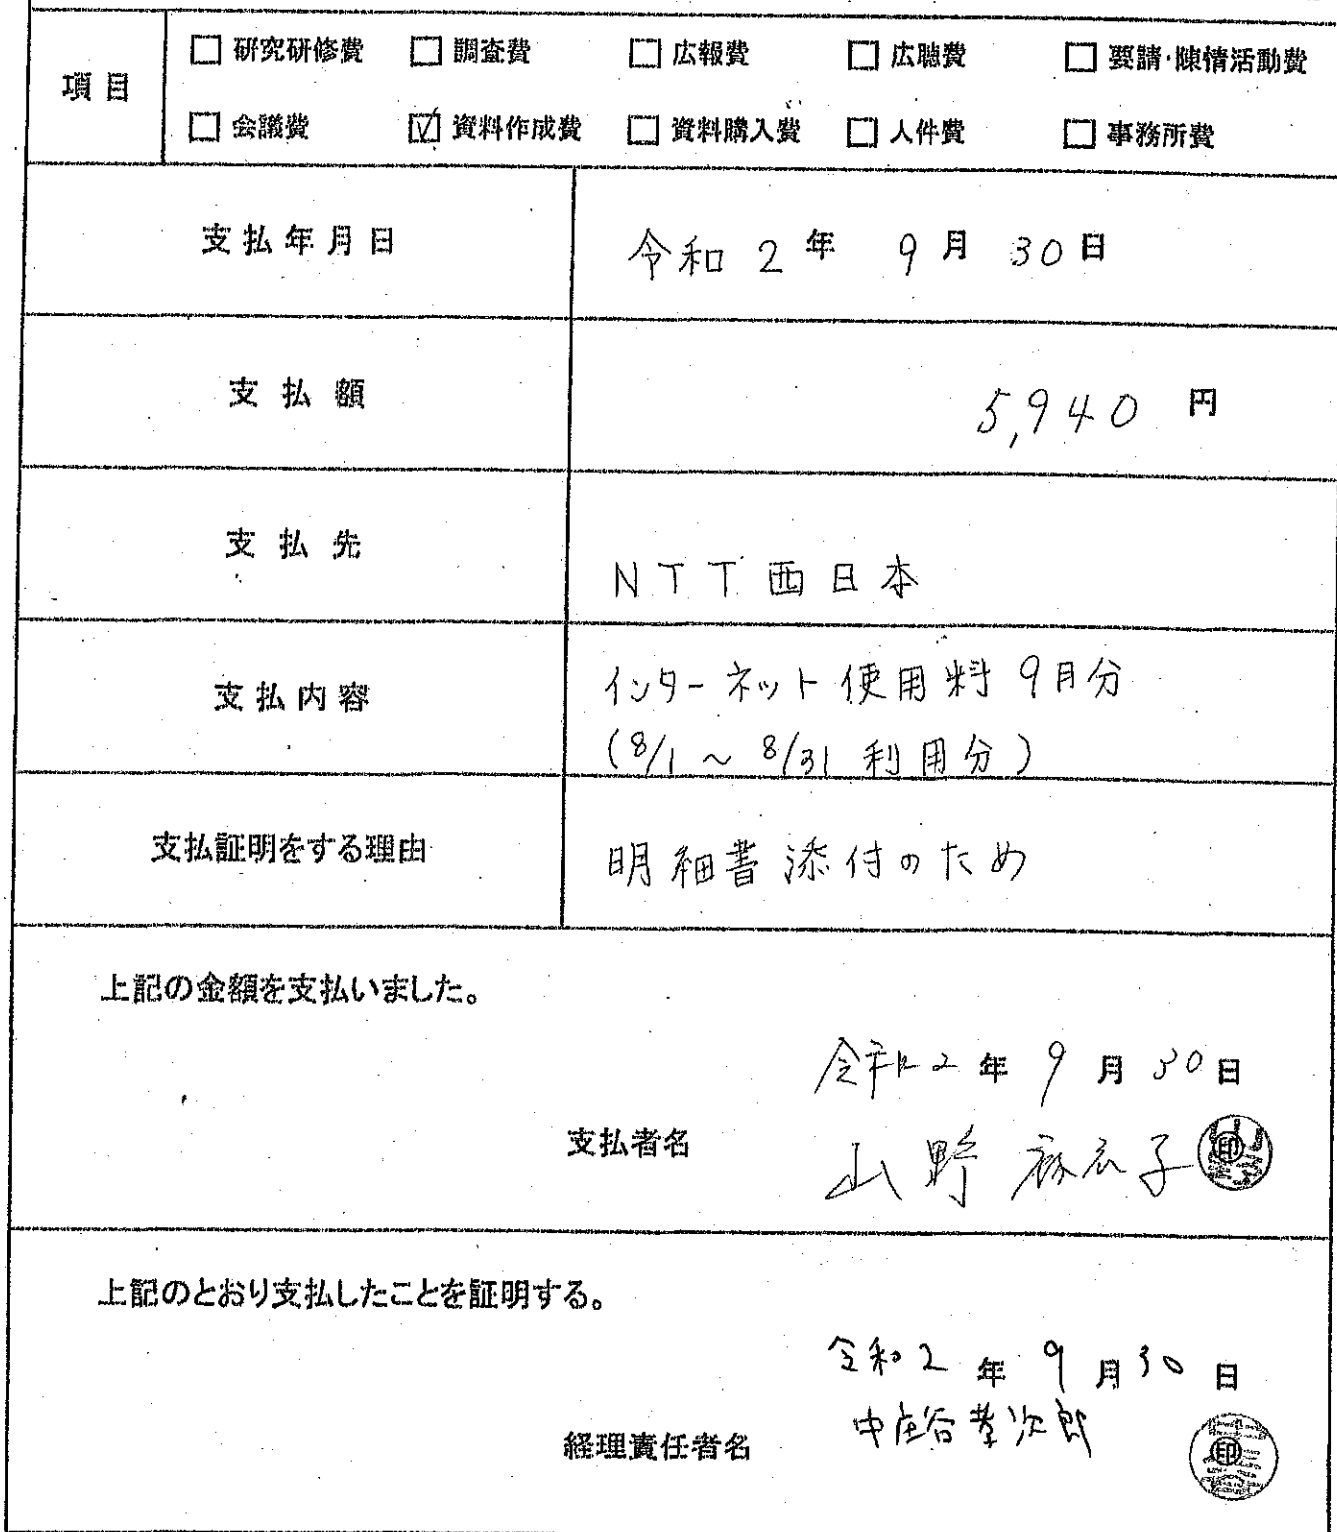 項目
□ 研究研修費 □ 調査費 □ 広報費 □ 広聴費 □ 要請・陳情活動費
□ 会議費 ☑ 資料作成費 □ 資料購入費 □ 人件費 □ 事務所費
支払年月日 令和 2 年 9 月 30 日
支払額 5,940 円
支払先 NTT西日本
支払内容 インターネット使用料 9月分
(8/1 ~ 8/31 利用分)
支払証明をする理由 明細書添付のため
上記の金額を支払いました。
令和 2 年 9 月 30 日
支払者名 山野 麻衣子 印
上記のとおり支払したことを証明する。
令和 2 年 9 月 30 日
経理責任者名 中 谷孝次郎 印